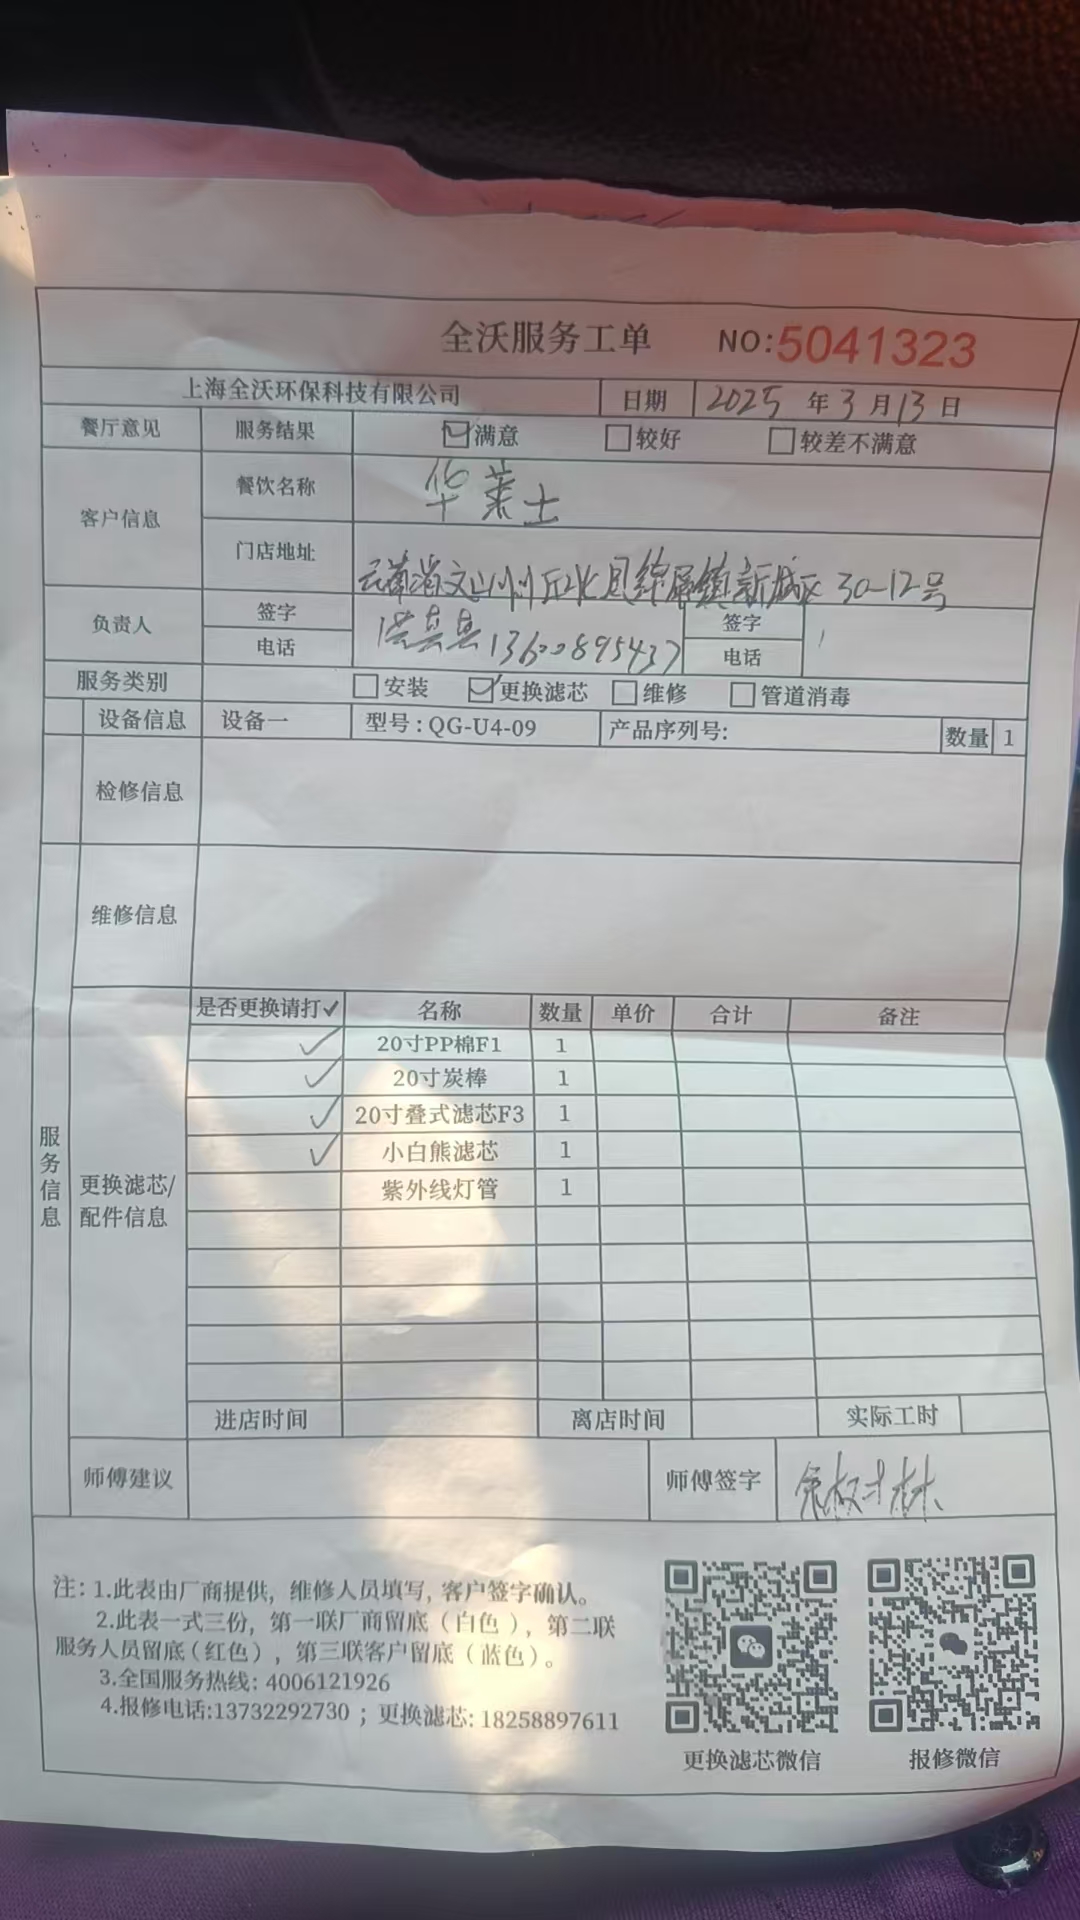 全沃服务工单 NO:5041323
上海全沃环保科技有限公司 日期 2025 年 3 月 13 日
餐厅意见 服务结果 满意 较好 较差不满意
客户信息 餐饮名称 华莱士
门店地址 云南省文山州丘北县锦屏镇新城区30-12号
负责人 签字 签字
电话 13600895437 电话
服务类别 安装 更换滤芯 维修 管道消毒
设备信息 设备一 型号：QG-U4-09 产品序列号: 数量 1
检修信息
维修信息
服务信息
更换滤芯/
配件信息
是否更换请打✓ 名称 数量 单价 合计 备注
✓ 20寸PP棉F1 1
✓ 20寸炭棒 1
✓ 20寸叠式滤芯F3 1
✓ 小白熊滤芯 1
紫外线灯管 1
进店时间 离店时间 实际工时
师傅建议 师傅签字
注：1.此表由厂商提供，维修人员填写，客户签字确认。
2.此表一式三份，第一联厂商留底（白色），第二联
服务人员留底（红色），第三联客户留底（蓝色）。
3.全国服务热线：4006121926
4.报修电话:13732292730 ；更换滤芯: 18258897611
更换滤芯微信 报修微信